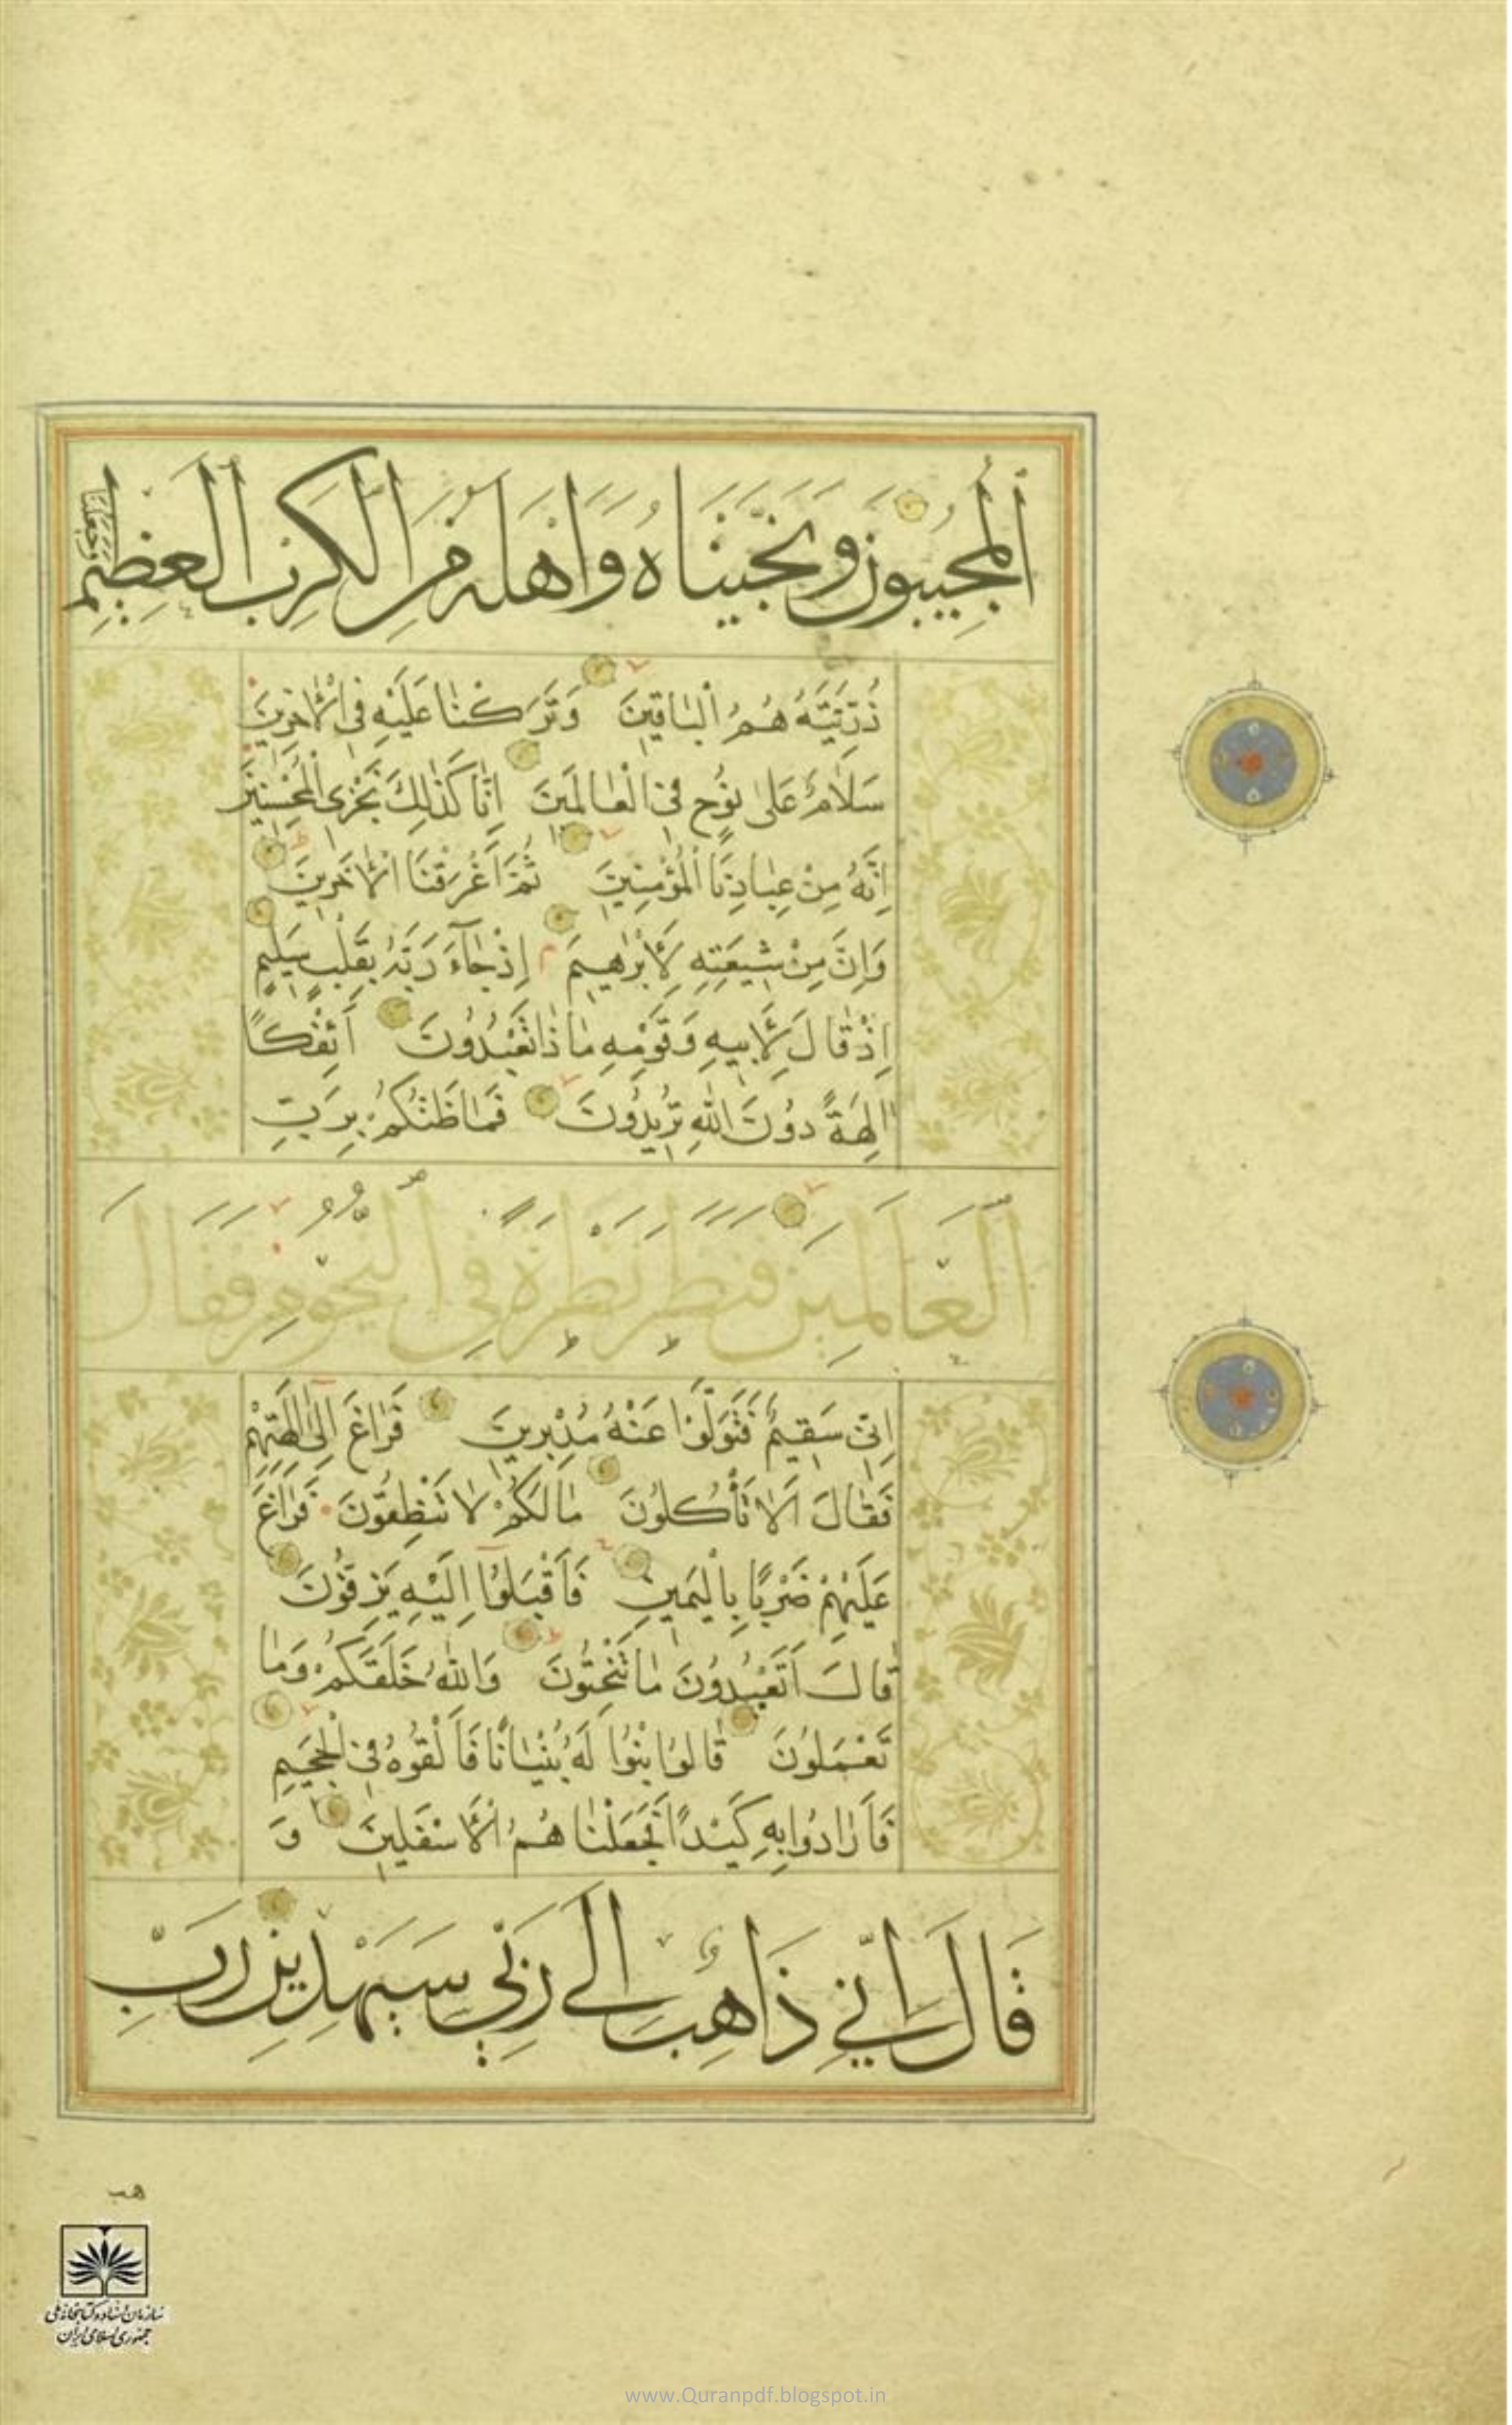 اَلْمُجِيبُونَ وَنَجَّيْنَاهُ وَاَهْلَهُ مِنَ الْكَرْبِ الْعَظِيمِ وَجَعَلْنَا
ذُرِّيَّتَهُ هُمُ الْبَاقِينَ وَتَرَكْنَا عَلَيْهِ فِي الْاٰخِرِينَ
سَلَامٌ عَلٰى نُوحٍ فِي الْعَالَمِينَ اِنَّا كَذٰلِكَ نَجْزِي الْمُحْسِنِينَ
اِنَّهُ مِنْ عِبَادِنَا الْمُؤْمِنِينَ ثُمَّ اَغْرَقْنَا الْاٰخَرِينَ
وَاِنَّ مِنْ شِيعَتِهِ لَاِبْرٰهِيمَ اِذْ جَآءَ رَبَّهُ بِقَلْبٍ سَلِيمٍ
اِذْ قَالَ لِاَبِيهِ وَقَوْمِهِ مَاذَا تَعْبُدُونَ اَئِفْكًا
اٰلِهَةً دُونَ اللهِ تُرِيدُونَ فَمَا ظَنُّكُمْ بِرَبِّ
الْعَالَمِينَ فَنَظَرَ نَظْرَةً فِي النُّجُومِ فَقَالَ
اِنِّي سَقِيمٌ فَتَوَلَّوْا عَنْهُ مُدْبِرِينَ فَرَاغَ اِلٰى اٰلِهَتِهِمْ
فَقَالَ اَلَا تَأْكُلُونَ مَا لَكُمْ لَا تَنْطِقُونَ فَرَاغَ
عَلَيْهِمْ ضَرْبًا بِالْيَمِينِ فَاَقْبَلُوٓا اِلَيْهِ يَزِفُّونَ
قَالَ اَتَعْبُدُونَ مَا تَنْحِتُونَ وَاللهُ خَلَقَكُمْ وَمَا
تَعْمَلُونَ قَالُوا ابْنُوا لَهُ بُنْيَانًا فَاَلْقُوهُ فِي الْجَحِيمِ
فَاَرَادُوا بِهِ كَيْدًا فَجَعَلْنَاهُمُ الْاَسْفَلِينَ وَ
قَالَ اِنِّي ذَاهِبٌ اِلٰى رَبِّي سَيَهْدِينِ رَبِّ
هب
سازمان اسناد و کتابخانه ملی
جمهوری اسلامی ایران
www.Quranpdf.blogspot.in